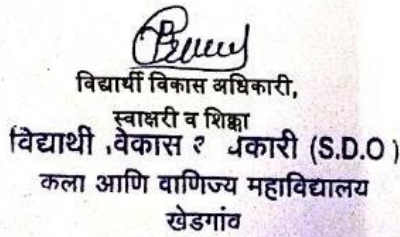 विद्यार्थी विकास अधिकारी,
स्वाक्षरी व शिक्का
विद्यार्थी (S.D.O)
कला आणि वाणिज्य महाविद्यालय
खेडगांव